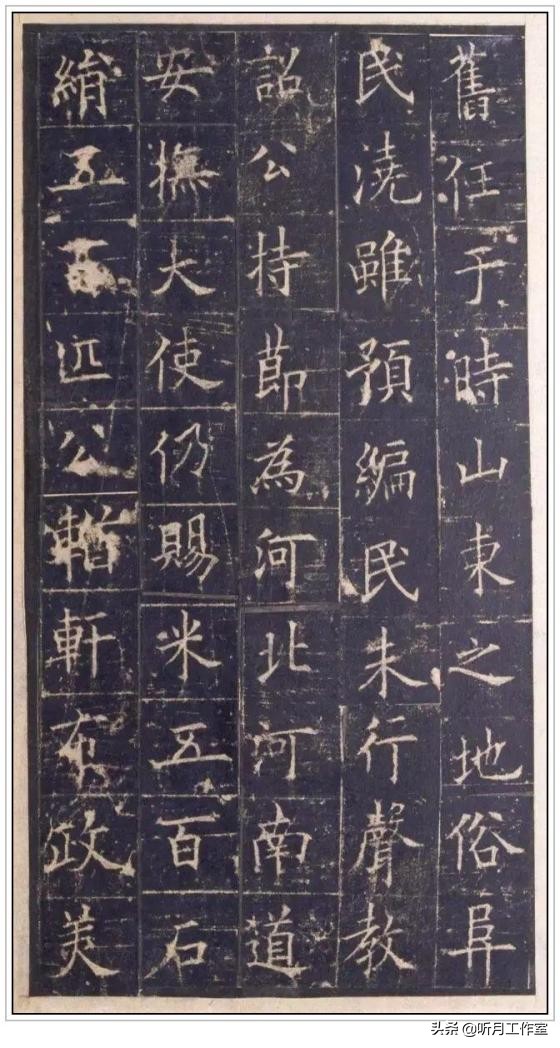 舊任于時山東之地俗阜
民澆雖預編民未行聲教
詔公持節為河北河南道
安撫大使仍賜米五百石
絹五百匹公輶軒布政美
头条 @听月工作室